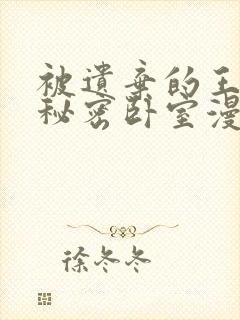 被遗弃的王
秘密卧室漫
徐冬冬